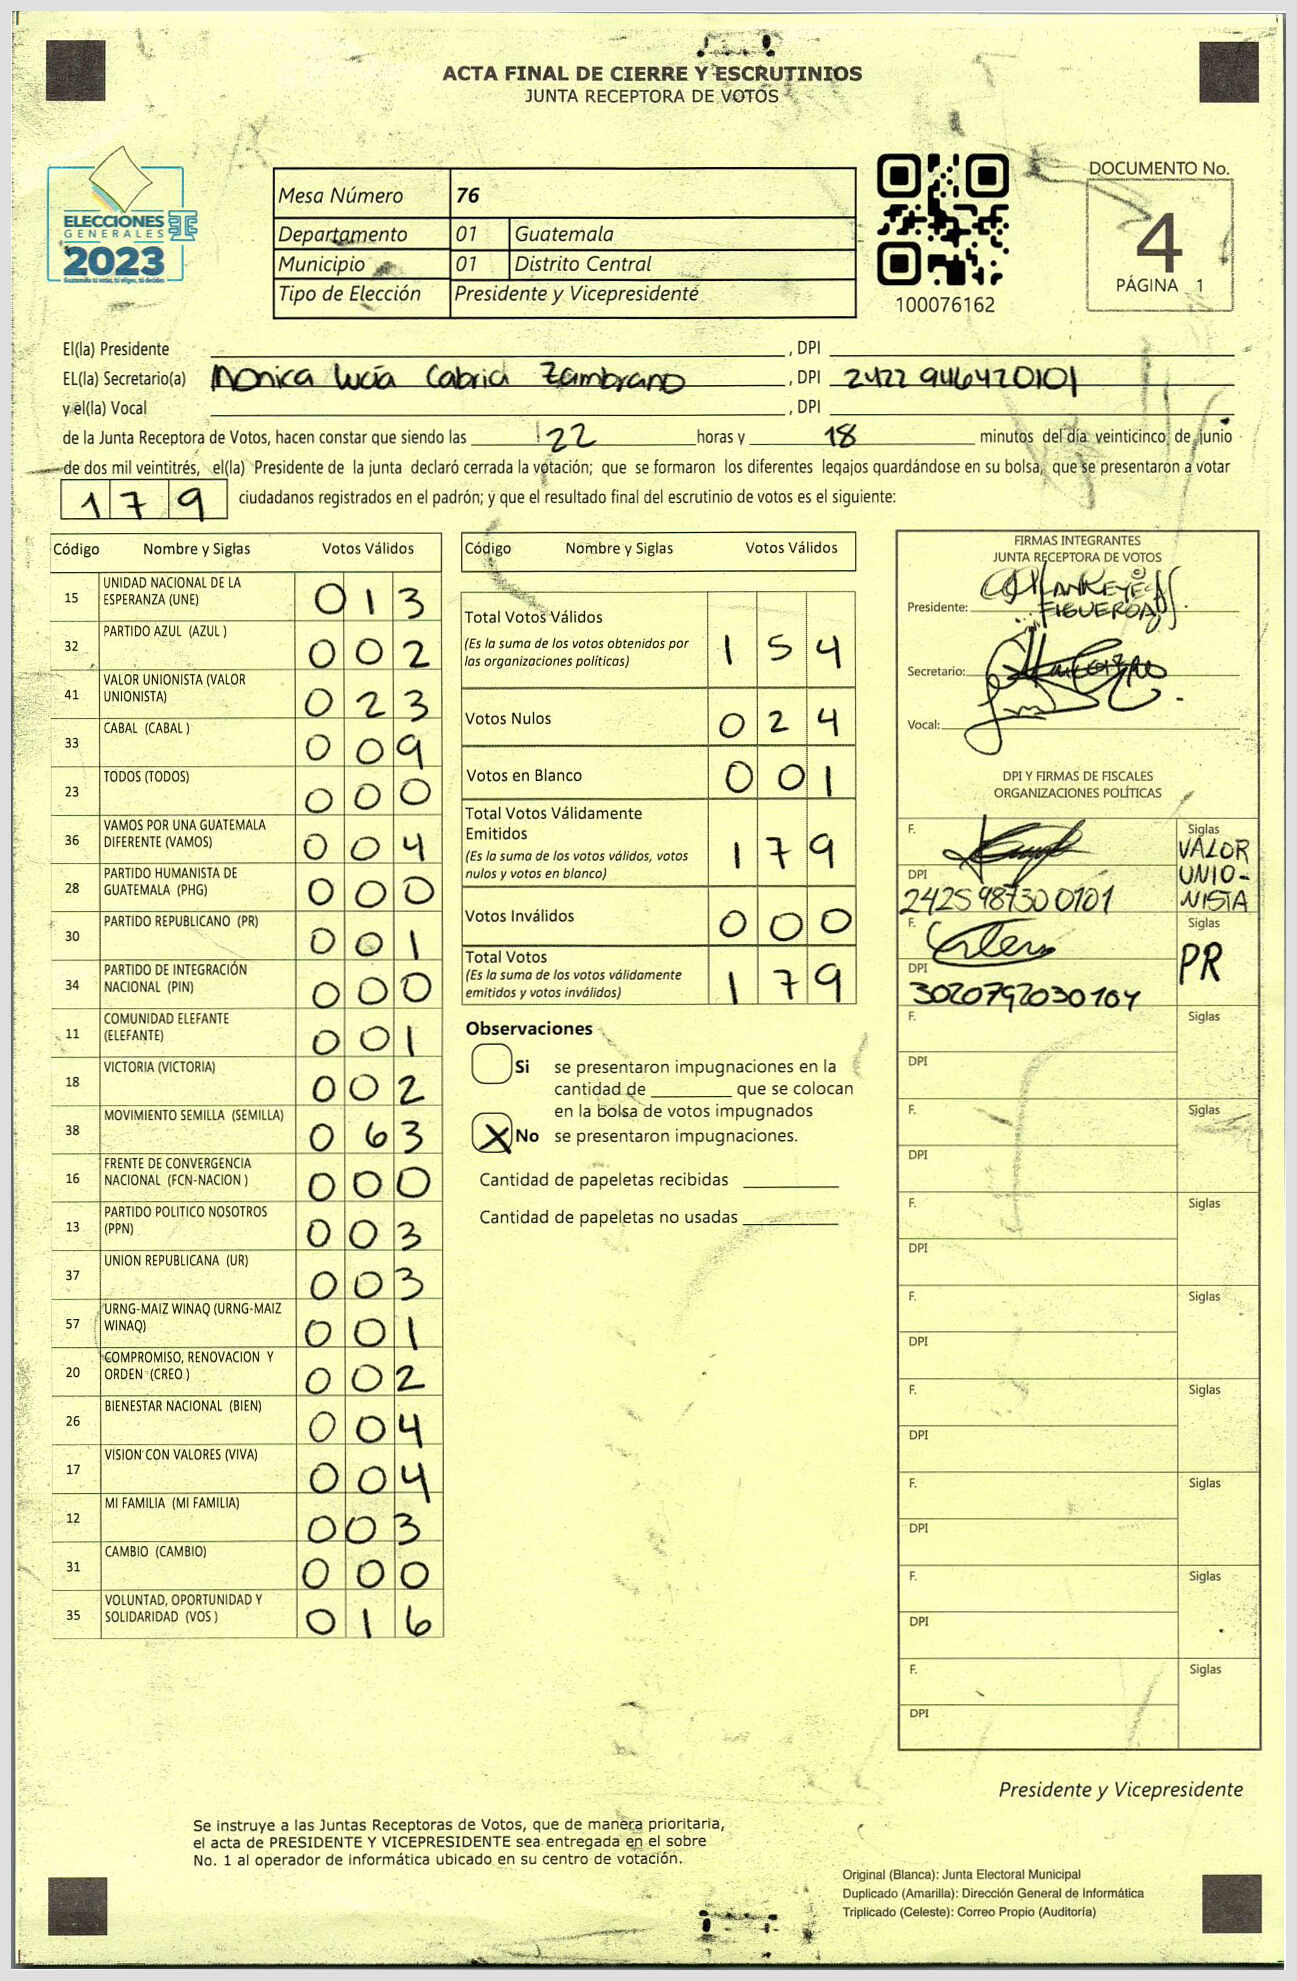 ACTA FINAL DE CIERRE Y ESCRUTINIOS
JUNTA RECEPTORA DE VOTOS
ELECCIONES
GENERALES
2023
Mesa Número 76
Departamento 01 Guatemala
Municipio 01 Distrito Central
Tipo de Elección Presidente y Vicepresidente
100076162
DOCUMENTO No.
4
PÁGINA 1
El(la) Presidente , DPI
EL(la) Secretario(a) Monica Lucía Cabria Zambrano , DPI 2422 946420101
y el(la) Vocal , DPI
de la Junta Receptora de Votos, hacen constar que siendo las 22 horas y 18 minutos del día veinticinco de junio
de dos mil veintitrés, el(la) Presidente de la junta declaró cerrada la votación; que se formaron los diferentes legajos guardándose en su bolsa, que se presentaron a votar
179 ciudadanos registrados en el padrón; y que el resultado final del escrutinio de votos es el siguiente:
Código Nombre y Siglas Votos Válidos
15 UNIDAD NACIONAL DE LA ESPERANZA (UNE) 013
32 PARTIDO AZUL (AZUL ) 002
41 VALOR UNIONISTA (VALOR UNIONISTA) 023
33 CABAL (CABAL ) 009
23 TODOS (TODOS) 000
36 VAMOS POR UNA GUATEMALA DIFERENTE (VAMOS) 004
28 PARTIDO HUMANISTA DE GUATEMALA (PHG) 000
30 PARTIDO REPUBLICANO (PR) 001
34 PARTIDO DE INTEGRACIÓN NACIONAL (PIN) 000
11 COMUNIDAD ELEFANTE (ELEFANTE) 001
18 VICTORIA (VICTORIA) 002
38 MOVIMIENTO SEMILLA (SEMILLA) 063
16 FRENTE DE CONVERGENCIA NACIONAL (FCN-NACION ) 000
13 PARTIDO POLITICO NOSOTROS (PPN) 003
37 UNION REPUBLICANA (UR) 003
57 URNG-MAIZ WINAQ (URNG-MAIZ WINAQ) 001
20 COMPROMISO, RENOVACION Y ORDEN (CREO ) 002
26 BIENESTAR NACIONAL (BIEN) 004
17 VISION CON VALORES (VIVA) 004
12 MI FAMILIA (MI FAMILIA) 003
31 CAMBIO (CAMBIO) 000
35 VOLUNTAD, OPORTUNIDAD Y SOLIDARIDAD (VOS ) 016
Código Nombre y Siglas Votos Válidos
Total Votos Válidos 154
(Es la suma de los votos obtenidos por
las organizaciones políticas)
Votos Nulos 024
Votos en Blanco 001
Total Votos Válidamente
Emitidos 179
(Es la suma de los votos válidos, votos
nulos y votos en blanco)
Votos Inválidos 000
Total Votos 179
(Es la suma de los votos válidamente
emitidos y votos inválidos)
Observaciones
Si se presentaron impugnaciones en la
cantidad de que se colocan
en la bolsa de votos impugnados
X No se presentaron impugnaciones.
Cantidad de papeletas recibidas
Cantidad de papeletas no usadas
FIRMAS INTEGRANTES
JUNTA RECEPTORA DE VOTOS
Presidente: FIGUEROA
Secretario:
Vocal:
DPI Y FIRMAS DE FISCALES
ORGANIZACIONES POLÍTICAS
F. Siglas VALOR UNIO-NISTA
DPI 2425 98730 0101
F. Siglas PR
DPI 3020792030104
F. Siglas
DPI
F. Siglas
DPI
F. Siglas
DPI
F. Siglas
DPI
F. Siglas
DPI
F. Siglas
DPI
F. Siglas
DPI
F. Siglas
DPI
Presidente y Vicepresidente
Se instruye a las Juntas Receptoras de Votos, que de manera prioritaria,
el acta de PRESIDENTE Y VICEPRESIDENTE sea entregada en el sobre
No. 1 al operador de informática ubicado en su centro de votación.
Original (Blanca): Junta Electoral Municipal
Duplicado (Amarilla): Dirección General de Informática
Triplicado (Celeste): Correo Propio (Auditoría)